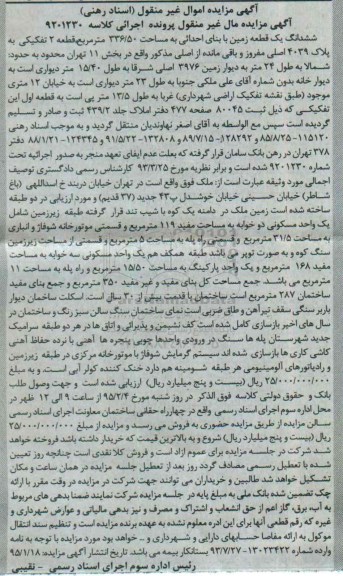 آگهی مزایده اموال غیر منقول (اسناد رهنی)
آگهی مزایده مال غیر منقول پرونده اجرائی کلاسه ۹۲۰۱۲۳۰
ششدانگ یک قطعه زمین با بنای احداثی به مساحت ۳۳۶/۵۰ مترمربع قطعه ۲ تفکیکی به
پلاک ۴۰۳۹ اصلی مفروز و باقی مانده از اصلی مذکور واقع در بخش ۱۱ تهران محدود به حدود:
شمالا به طول ۲۴ متر به دیوار زمین ۳۹۷۶ اصلی شرقا به طول ۱۵/۴۰ متر دیواری است به
دیوار خانه بدون شماره آقای علی ملکی جنوبا به طول ۲۳ متر دیواری است به خیابان ۱۲ متری
موجود (طبق نقشه تفکیک اراضی شهرداری) غربا به طول ۱۳/۵ متر پی است به قطعه اول این
تفکیکی که ذیل ثبت ۸۰۰۴۵ صفحه ۴۷۷ دفتر املاک جلد ۴۳۹/۲ ثبت و صادر و تسلیم
گردیده است سپس مع الواسطه به آقای اصغر نهاوندیان منتقل گردید و به موجب اسناد رهنی
۱۱۵۱۲۰-۸۵/۸/۲۵ و ۱۲۸۲۹۲-۸۹/۷/۱۵ و ۱۳۲۸۰۸-۹۱/۵/۲۲ و ۱۲۴۳۴۵-۸۸/۱/۲۱ دفتر
۳۷۸ تهران در رهن بانک سامان قرار گرفته که بعلت عدم ایفای تعهد منجر به صدور اجرائیه تحت
شماره ۹۲۰۱۲۳۰ شده است و برابر نظریه مورخ ۹۳/۳/۲۵ کارشناس رسمی دادگستری توصیف
اجمالی مورد وثیقه عبارت است از: ملک فوق واقع است در تهران خیابان دربند خ اسداللهی (باغ
شاطر) خیابان حسینی خیابان خوشدل پ ۴۳ جدید (۳۷ قدیم) و مورد ارزیابی در دو طبقه
ساخته شده است زمین ملک در دامنه یک کوه با شیب تند قرار گرفته طبقه زیرزمین شامل
یک واحد مسکونی دو خوابه به مساحت مفید ۱۱۹ مترمربع و قسمتی موتورخانه شوفاژ و انباری
به مساحت ۳۱/۵ مترمربع و قسمتی راه پله به مساحت ۵ مترمربع و قسمتی از مساحت زیرزمین
سنگ کوه و به صورت توپر می باشد طبقه همکف هم یک واحد مسکونی سه خوابه به مساحت
مفید ۱۶۸ مترمربع و یک واحد پارکینگ به مساحت ۱۵/۵۰ مترمربع و راه پله به مساحت ۱۱
مترمربع می باشد. جمع مساحت کل بنای مفید و غیر مفید ۳۵۰ مترمربع و جمع بنای مفید
ساختمان ۲۸۷ مترمربع است ساختمان با قدمت بیش از ۲۰ سال است. اسکلت ساختمان دیوار
باربر سنگی سقف تیرآهن و طاق ضربی است نمای ساختمان سنگ سالن سبز رنگ و ساختمان در
سال های اخیر بازسازی کامل شده است کف نشیمن و پذیرائی و اتاق ها در هر دو طبقه سرامیک
جدید شهرستان پله ها سنگ درب ورودی واحدها چوبی پنجره ها آهنی با نرده حفاظ آهنی
کاشی کاری ها بازسازی شده اند سیستم گرمایش شوفاژ با موتورخانه مرکزی در طبقه زیرزمین
و رادیاتورهای آلومینیومی هر طبقه شومینه هم دارد خنک کننده کولر آبی است. و به مبلغ
۲۵/۰۰۰/۰۰۰/۰۰۰ ریال (بیست و پنج میلیارد ریال) ارزیابی شده است و جهت وصول طلب
بانک و حقوق دولتی کلاسه فوق الذکر در روز شنبه مورخ ۹۵/۲/۴ از ساعت ۹ الی ۱۲ ظهر در
محل اداره سوم اجرای اسناد رسمی واقع در چهارراه حقانی ساختمان معاونت اجرای اسناد رسمی
سالن مزایده از طریق مزایده حضوری به فروش می رسد و مزایده از مبلغ ۲۵/۰۰۰/۰۰۰/۰۰۰
ریال (بیست و پنج میلیارد ریال) شروع و به بالاترین قیمت که خریدار داشته باشد فروخته خواهد
شد شرکت در جلسه مزایده برای عموم آزاد است و فروش کلا نقدی است چنانچه روز تعیین
شده با تعطیل رسمی مصادف گردد روز بعد از تعطیل جلسه مزایده در همان ساعت و مکان
تشکیل خواهد شد طالبین و خریداران می توانند جهت شرکت در مزایده در وقت مقرر با ارائه
چک تضمین شده بانک ملی به مبلغ پایه در جلسه مزایده شرکت نمایند ضمنا بدهی های مربوط
به آب، برق، گاز اعم از حق انشعاب و اشتراک و مصرف و نیز بدهی مالیاتی و عوارض شهرداری و
غیره که رقم قطعی آنها برای این اداره معلوم نشده به عهده برنده مزایده است و تنظیم سند انتقال
موکول به ارائه مفاصا حسابهای دارایی و شهرداری و .. خواهد بود مورد مزایده با توجه به نامه
وارده شماره ۱۳۰۲۳۴۲۲-۹۳/۷/۲۷ بستانکار بیمه می باشد. تاریخ انتشار آگهی مزایده: ۹۵/۱/۱۸
رئیس اداره سوم اجرای اسناد رسمی - نقیبی